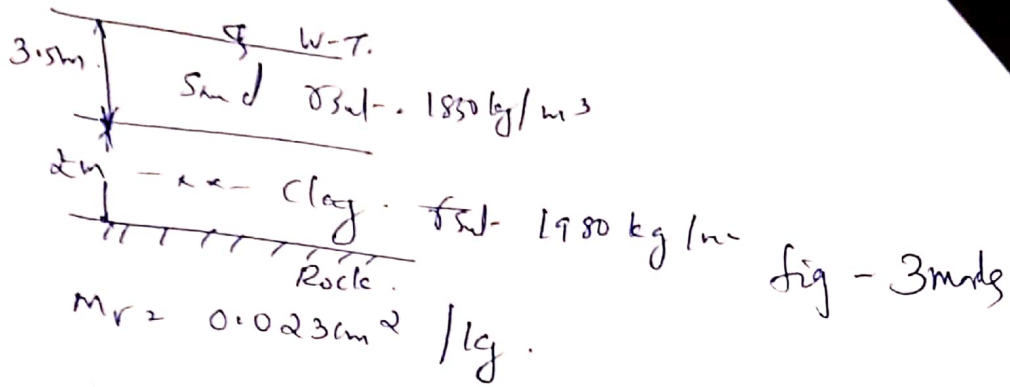 W-T.
3.5m
Sand γsat- . 1850 kg/m3
2m - x x - Clay . γsat- 1980 kg/m
Rock .
fig - 3marks
Mv = 0.023cm2 /kg .